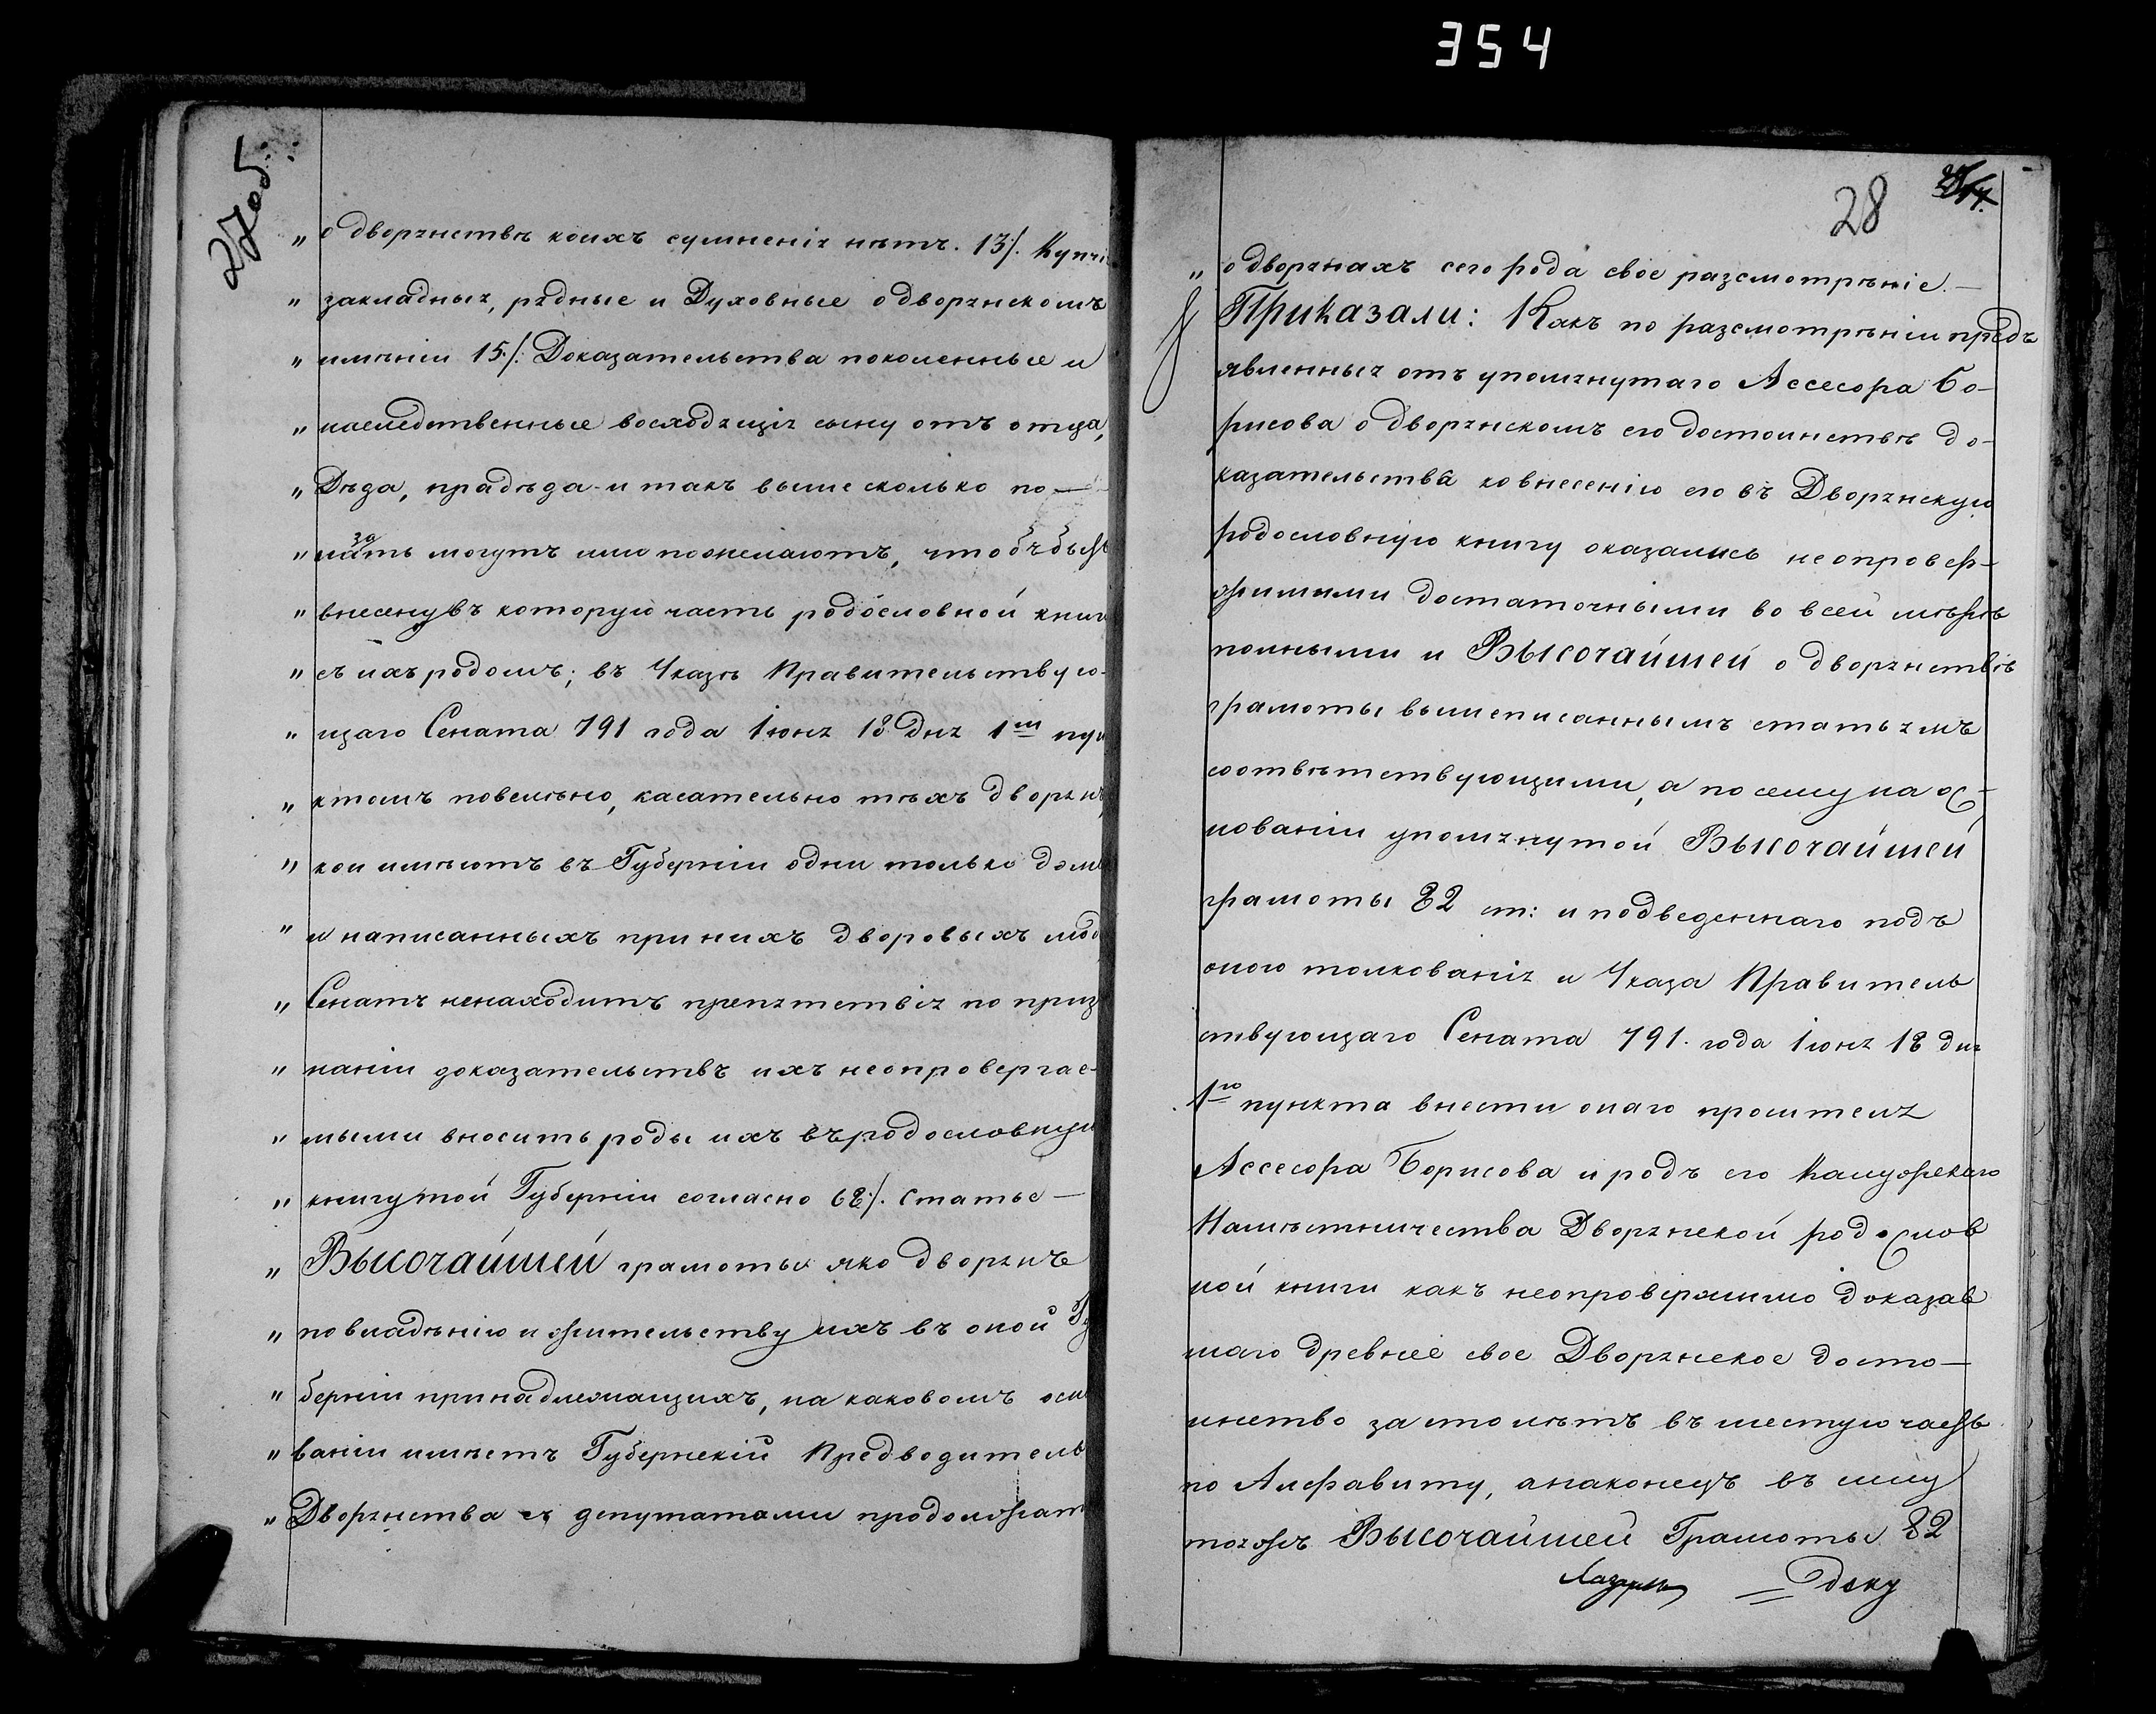 354
27 об:
„ о дворянствѣ коихъ сумненія нѣтъ. 13/. Купчі
„ закладныя, рядные и Духовные о дворянскомъ
„ имѣніи 15/. Доказательства поколенные и
„ наследственные восходящія сыну отъ отца,
„ Дѣда, прадѣда и такъ выше сколько по—
за
„ кать могутъ или пожелаютъ, чтобъ быть
„ внесену въ которую часть родословной книг
„ съ ихъ родомъ; въ Указѣ Правительствую-
„ щаго Сената 791 года Іюня 18 Дня 1м пун
„ ктомъ повелѣно, касательно тѣхъ дворянъ,
„ кои имѣютъ въ Губерніи одни только домы
„ и написанныхъ при нихъ дворовыхъ люд
„ Сенатъ ненаходитъ препятствія по приз
„ наніи доказательствъ ихъ неопровергае-
„ мыми вносить роды ихъ въ родословную
„ книгу той Губерніи согласно 68/. Статье —
„ Высочайшей грамоты яко дворянъ
„ по владѣнію и жительству ихъ въ оной Гу
„ берніи принадлежащихъ, на каковомъ осн
„ ваніи имѣетъ Губернскій Предводитель
„ Дворянства съ депутатами продолжат
28
„ о дворянахъ сего рода свое разсмотрѣніе. —
Приказали: Какъ по разсмотрѣніи предъ
явленныя отъ упомянутаго Ассесора Бо-
рисова о дворянскомъ его достоинствѣ до-
казательства ко внесенію его въ Дворянскую
родословную книгу оказались неопровер-
жимыми достаточными во всей мѣрѣ
полными и Высочайшей о дворянствѣ
грамоты вышеписаннымъ статьямъ
соотвѣтствующими, а посему на ос-
нованіи упомянутой Высочайшей
грамоты 82 ст: и подведеннаго подъ
оного толкованія и Указа Правитель
ствующаго Сената 791. года Іюня 18 дня
1го пункта внести онаго просителя
Ассесора Борисова и родъ его Калужскаго
Намѣстничества Дворянской родослов
ной книги какъ неопровіржимо доказав
шаго древнее свое Дворянское досто—
инство за сто лѣтъ въ шестую часть
по Алфавиту, а наконецъ въ силу
тояжъ Высочайшей Грамоты 82
= Доку